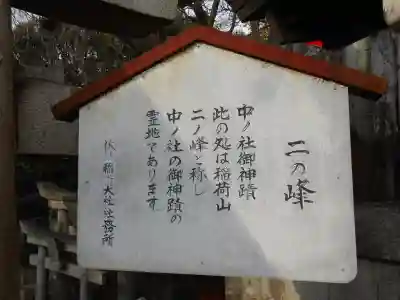 二の峰
中ノ社御神蹟
此の処は稲荷山
二ノ峰と称し
中ノ社の御神蹟の
霊地であります
伏見稲荷大社社務所